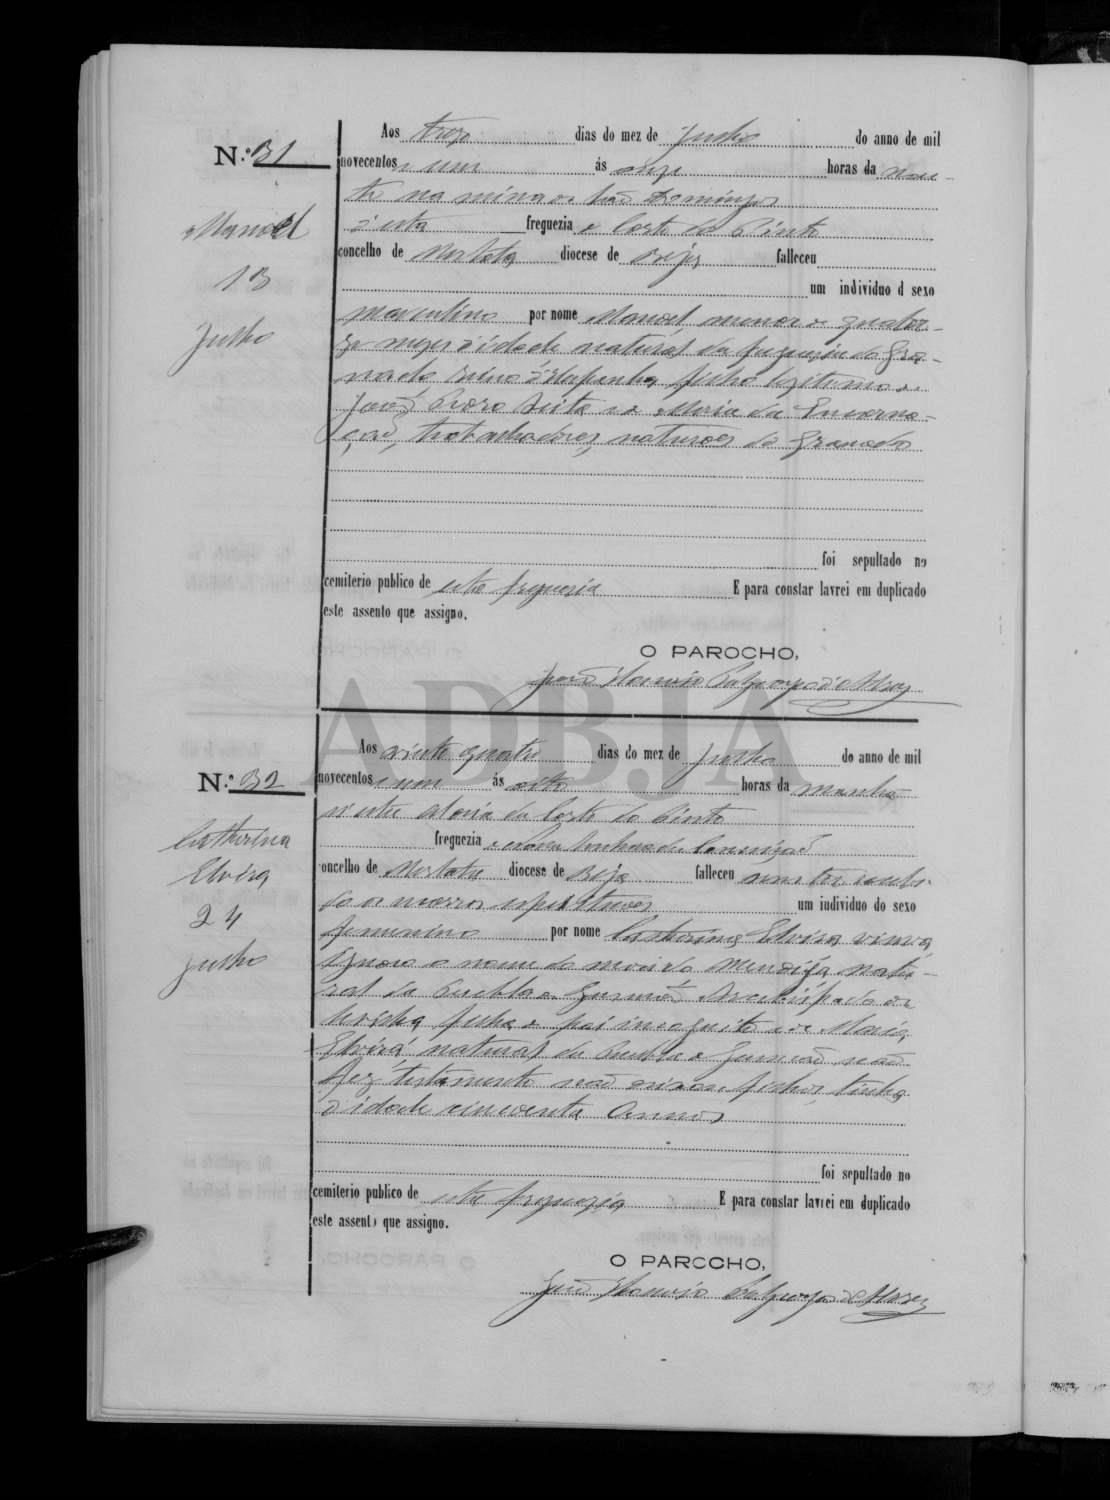 N.º 31
Manoel
13
Junho
Aos treze dias do mez de Junho do anno de mil
novecentos e um ás onze horas da noi-
te na mina de São Domingos
d'esta freguezia de Corte do Pinto
concelho de Mertola diocese de Beja falleceu
um individuo d sexo
masculino por nome Manoel, menor de quator-
ze mezes d'idade natural da freguezia de Gra-
nado reino d'Hespanha filho legitimo de
João e de Maria da Encarna-
ção, trabalhadores, naturaes de Granado
foi sepultado no
cemiterio publico de esta freguezia E para constar lavrei em duplicado
este assento que assigno.
O PAROCHO,
João
ADBJA
N.º 32
Catherina
Elvira
24
Junho
Aos vinte quatro dias do mez de Junho do anno de mil
novecentos e um ás oito horas da manhã
n'esta aldeia da Corte do Pinto
freguezia de Nossa Senhora da Conceição
concelho de Mertola diocese de Beja falleceu sem ter recebi-
do os um individuo do sexo
femenino por nome Catherina Elvira viuva
ignoro o nome do marido Mendiga natu-
ral da Puebla de Gusmão Arcebispado de
filha de pai incognito e de Maria
Elvira natural da Puebla de Gusmão não
fez testamento não deixou filhos tinha
d'idade cincoenta annos
foi sepultado no
cemiterio publico de esta freguezia E para constar lavrei em duplicado
este assento que assigno.
O PAROCHO,
João